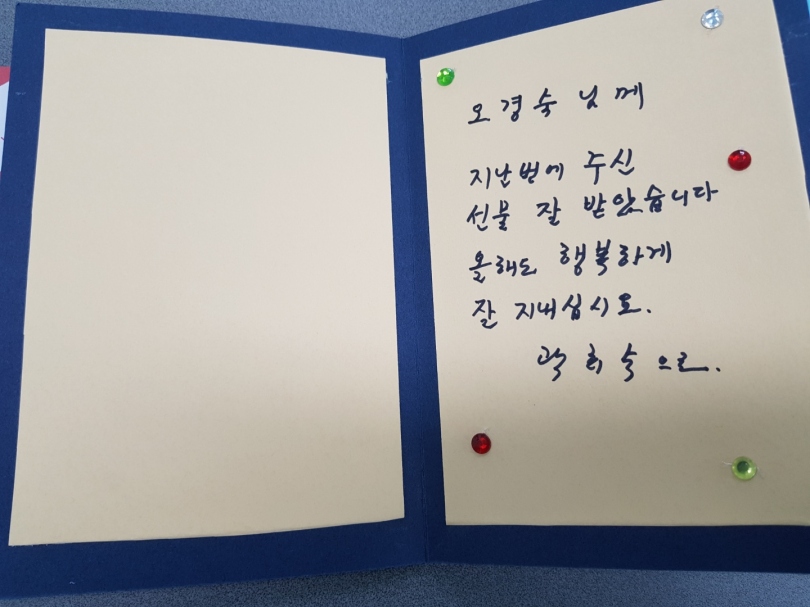 오경숙 님께
지난번에 주신
선물 잘 받았습니다
올해도 행복하게
잘 지내십시요.
곽희숙으로.